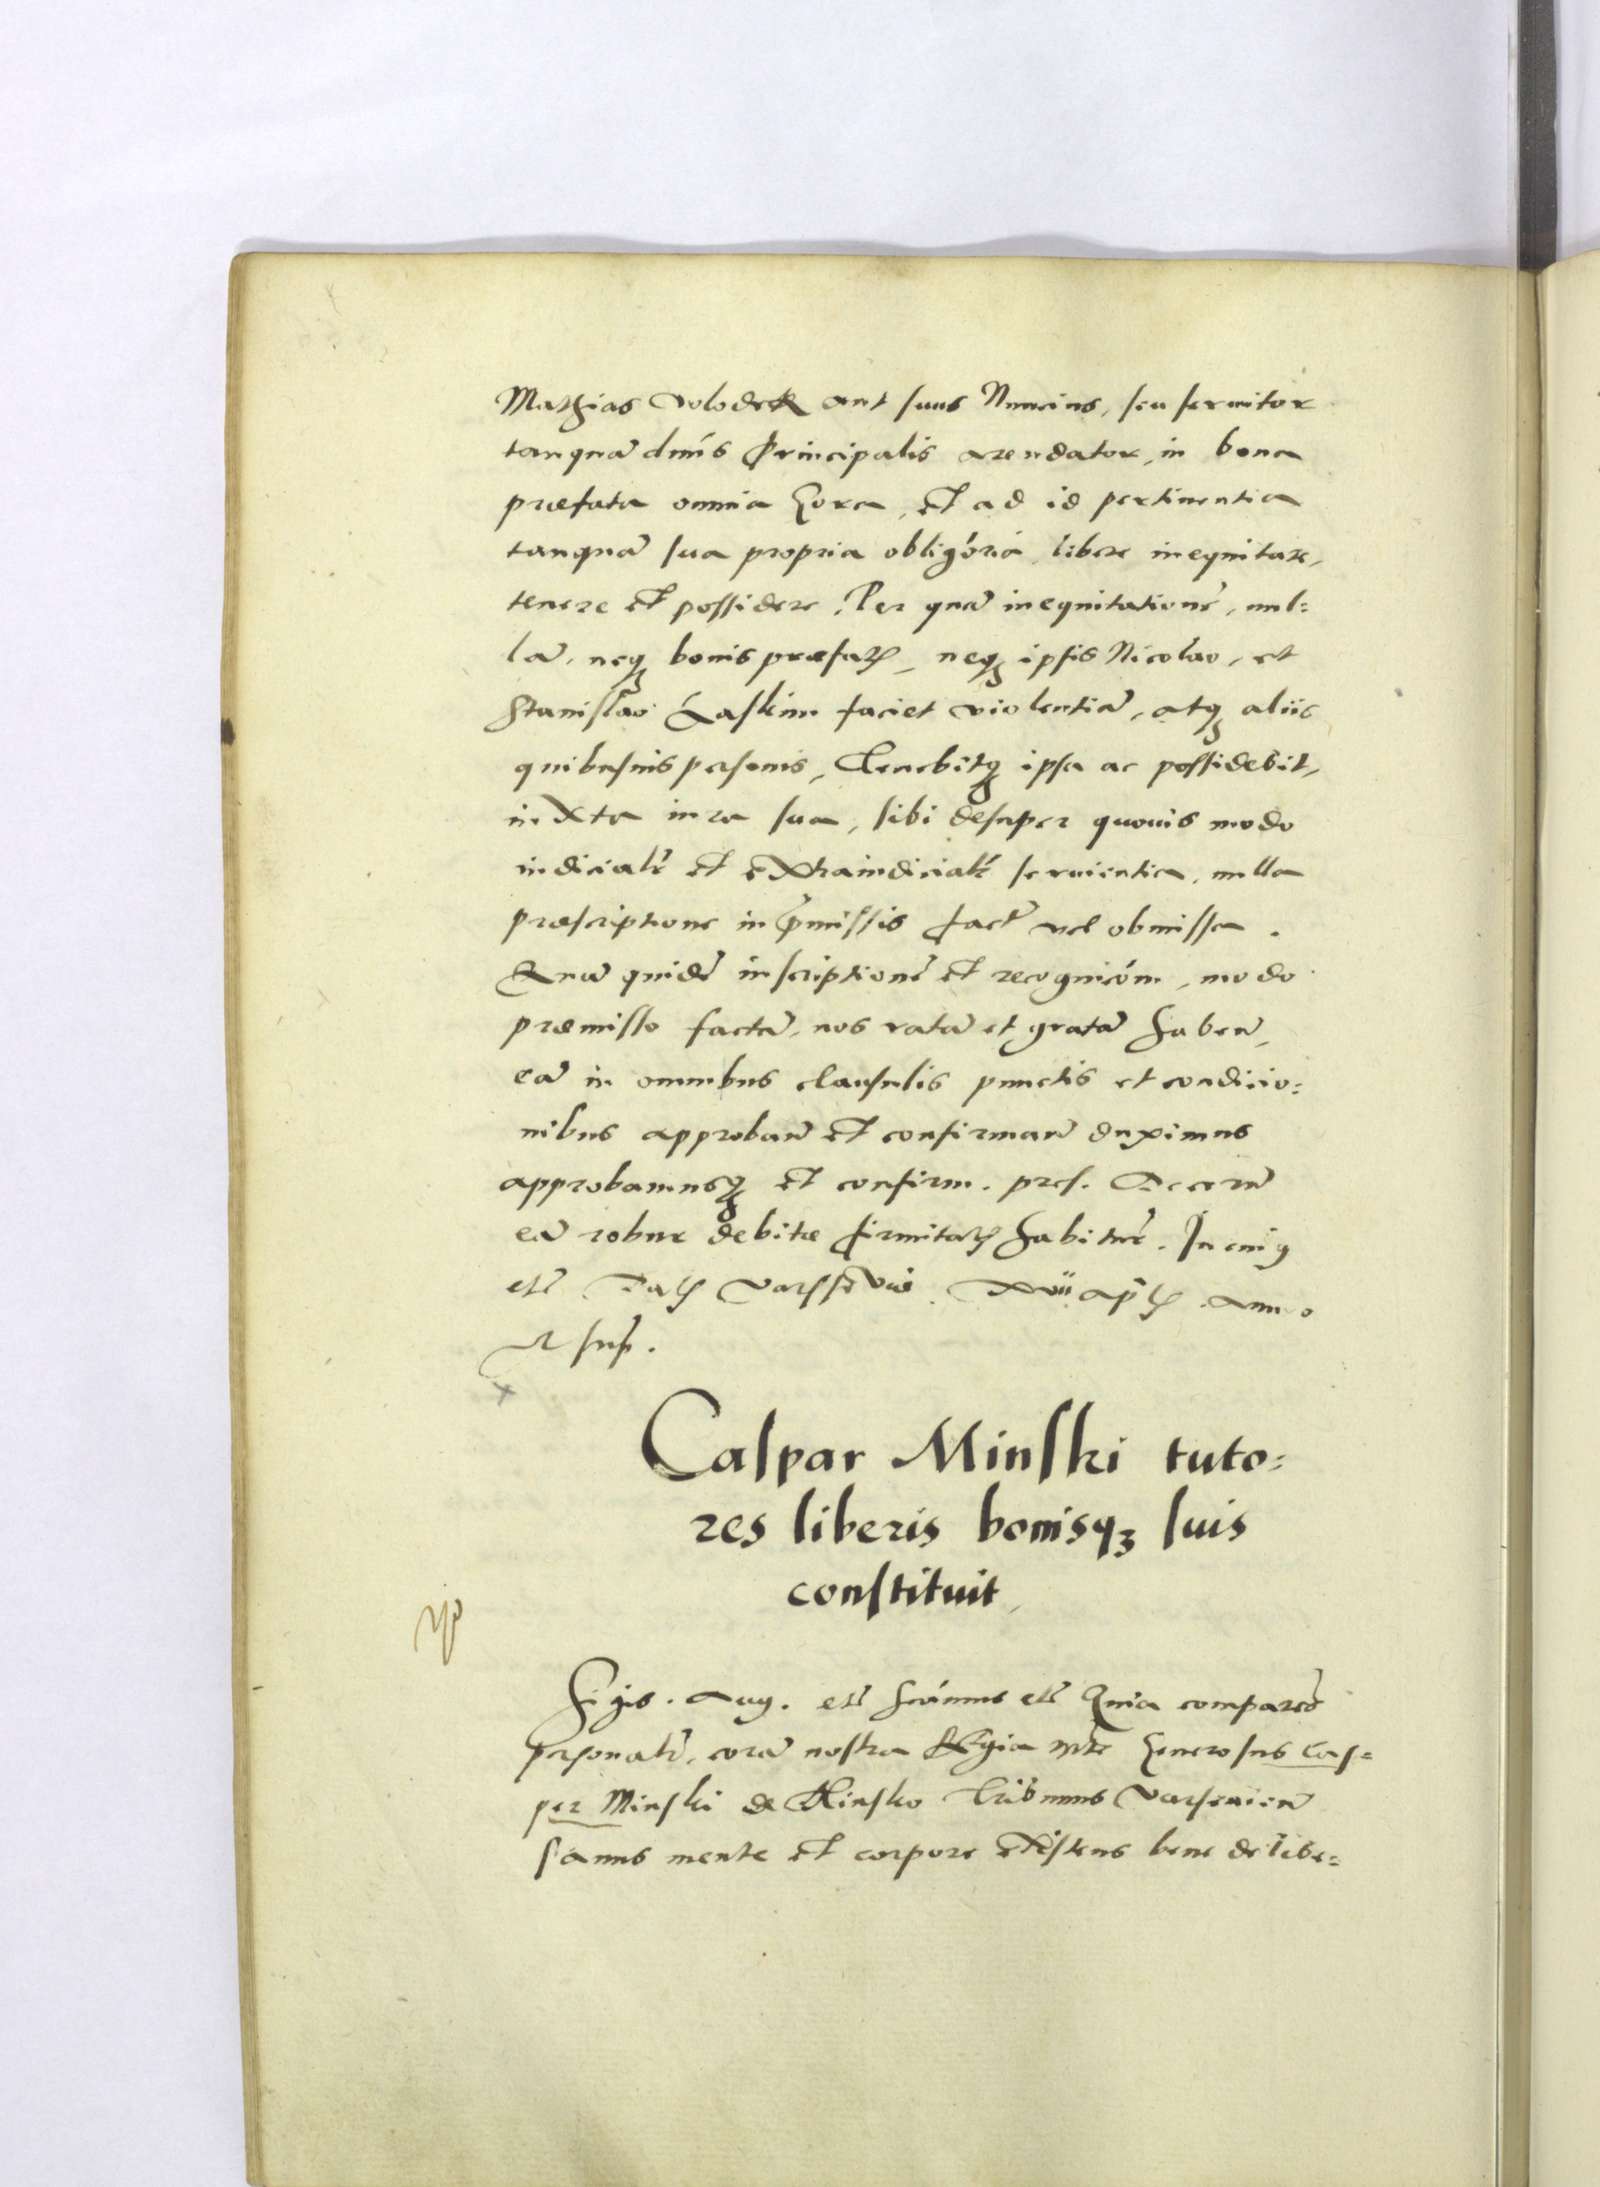 Mathias Volodek aut suus Nuncius, seu seruitor
tanquã dnũs Principalis arendator, in bona
præfata omnia Gora, et ad id pertinentia
tanquã sua propria obligóriá libere inequitare,
tenere et possidere, Per quã inequitationẽ, nul=
lã, neqꝫ bonis præfatꝭ, neqꝫ ipsis Nicolao, et
Stanislao Laskim faciet violentiã, atqꝫ aliis
quibusuis personis, Tenebitqꝫ ipsa ac possidebit,
iuxta iura sua, sibi desuper quouis modo
iudicialr̃ et extraiudicialr̃ seruientia, nulla
præscriptione in p̃missis fact̃ vel obmissa.
Quã quidẽ inscriptionẽ et recognicóm, modo
præmisso factã, nos ratã et gratã haben̄,
eã in omnibus clausulis punctis et condicio=
nibus approban̄ et confirman̄ duximus
approbamusqꝫ et confirm. pres. Decern̄
eã robur debitæ firmitatꝭ habiturã. In cuiꝯ
etc̃ Datꝭ Varssouiæ. xvii aplꝭ anno
ut sup̃.
Caspar Minski tuto=
res liberis bonisqꝫ suis
constituit,
Sigis. Aug. etc̃ Scímus etc̃ Quia comparẽs
personalr̃, corã nostra Regia Mte Generosus Cas=
per Minski de Minsko Tribunus Varsouien̄
sanus mente et corpore existens bene delibe=